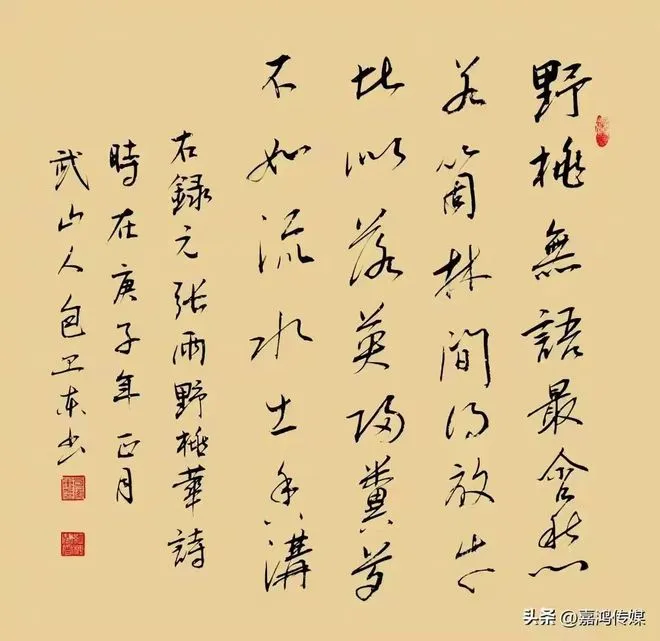 野桃無語最含愁
若箇林間得放
比似落英歸糞
不如流水香溝
右録元張雨野桃華詩
時在庚子年正月
武山人包卫东书
头条 @嘉鸿传媒